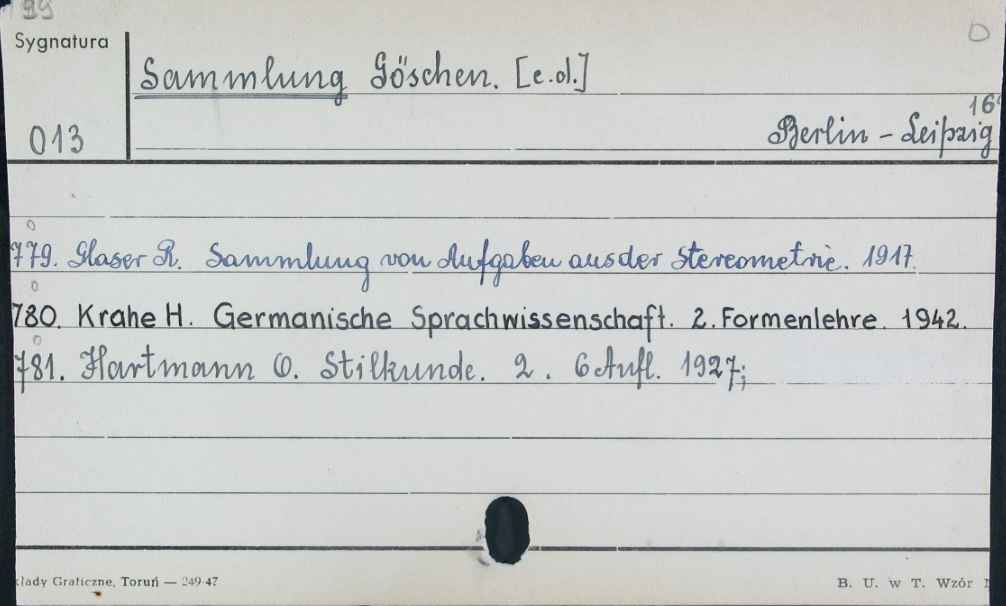 99
Sygnatura
Sammlung Göschen. [c.d.]
16°
013
Berlin - Leipzig
779. Glaser R. Sammlung von Aufgaben aus der Stereometrie. 1917.
780. Krahe H. Germanische Sprachwissenschaft. 2. Formenlehre. 1942.
781. Hartmann O. Stilkunde. 2. 6 Aufl. 1927;
łady Graficzne, Toruń — 249-47
B. U. w T. Wzór